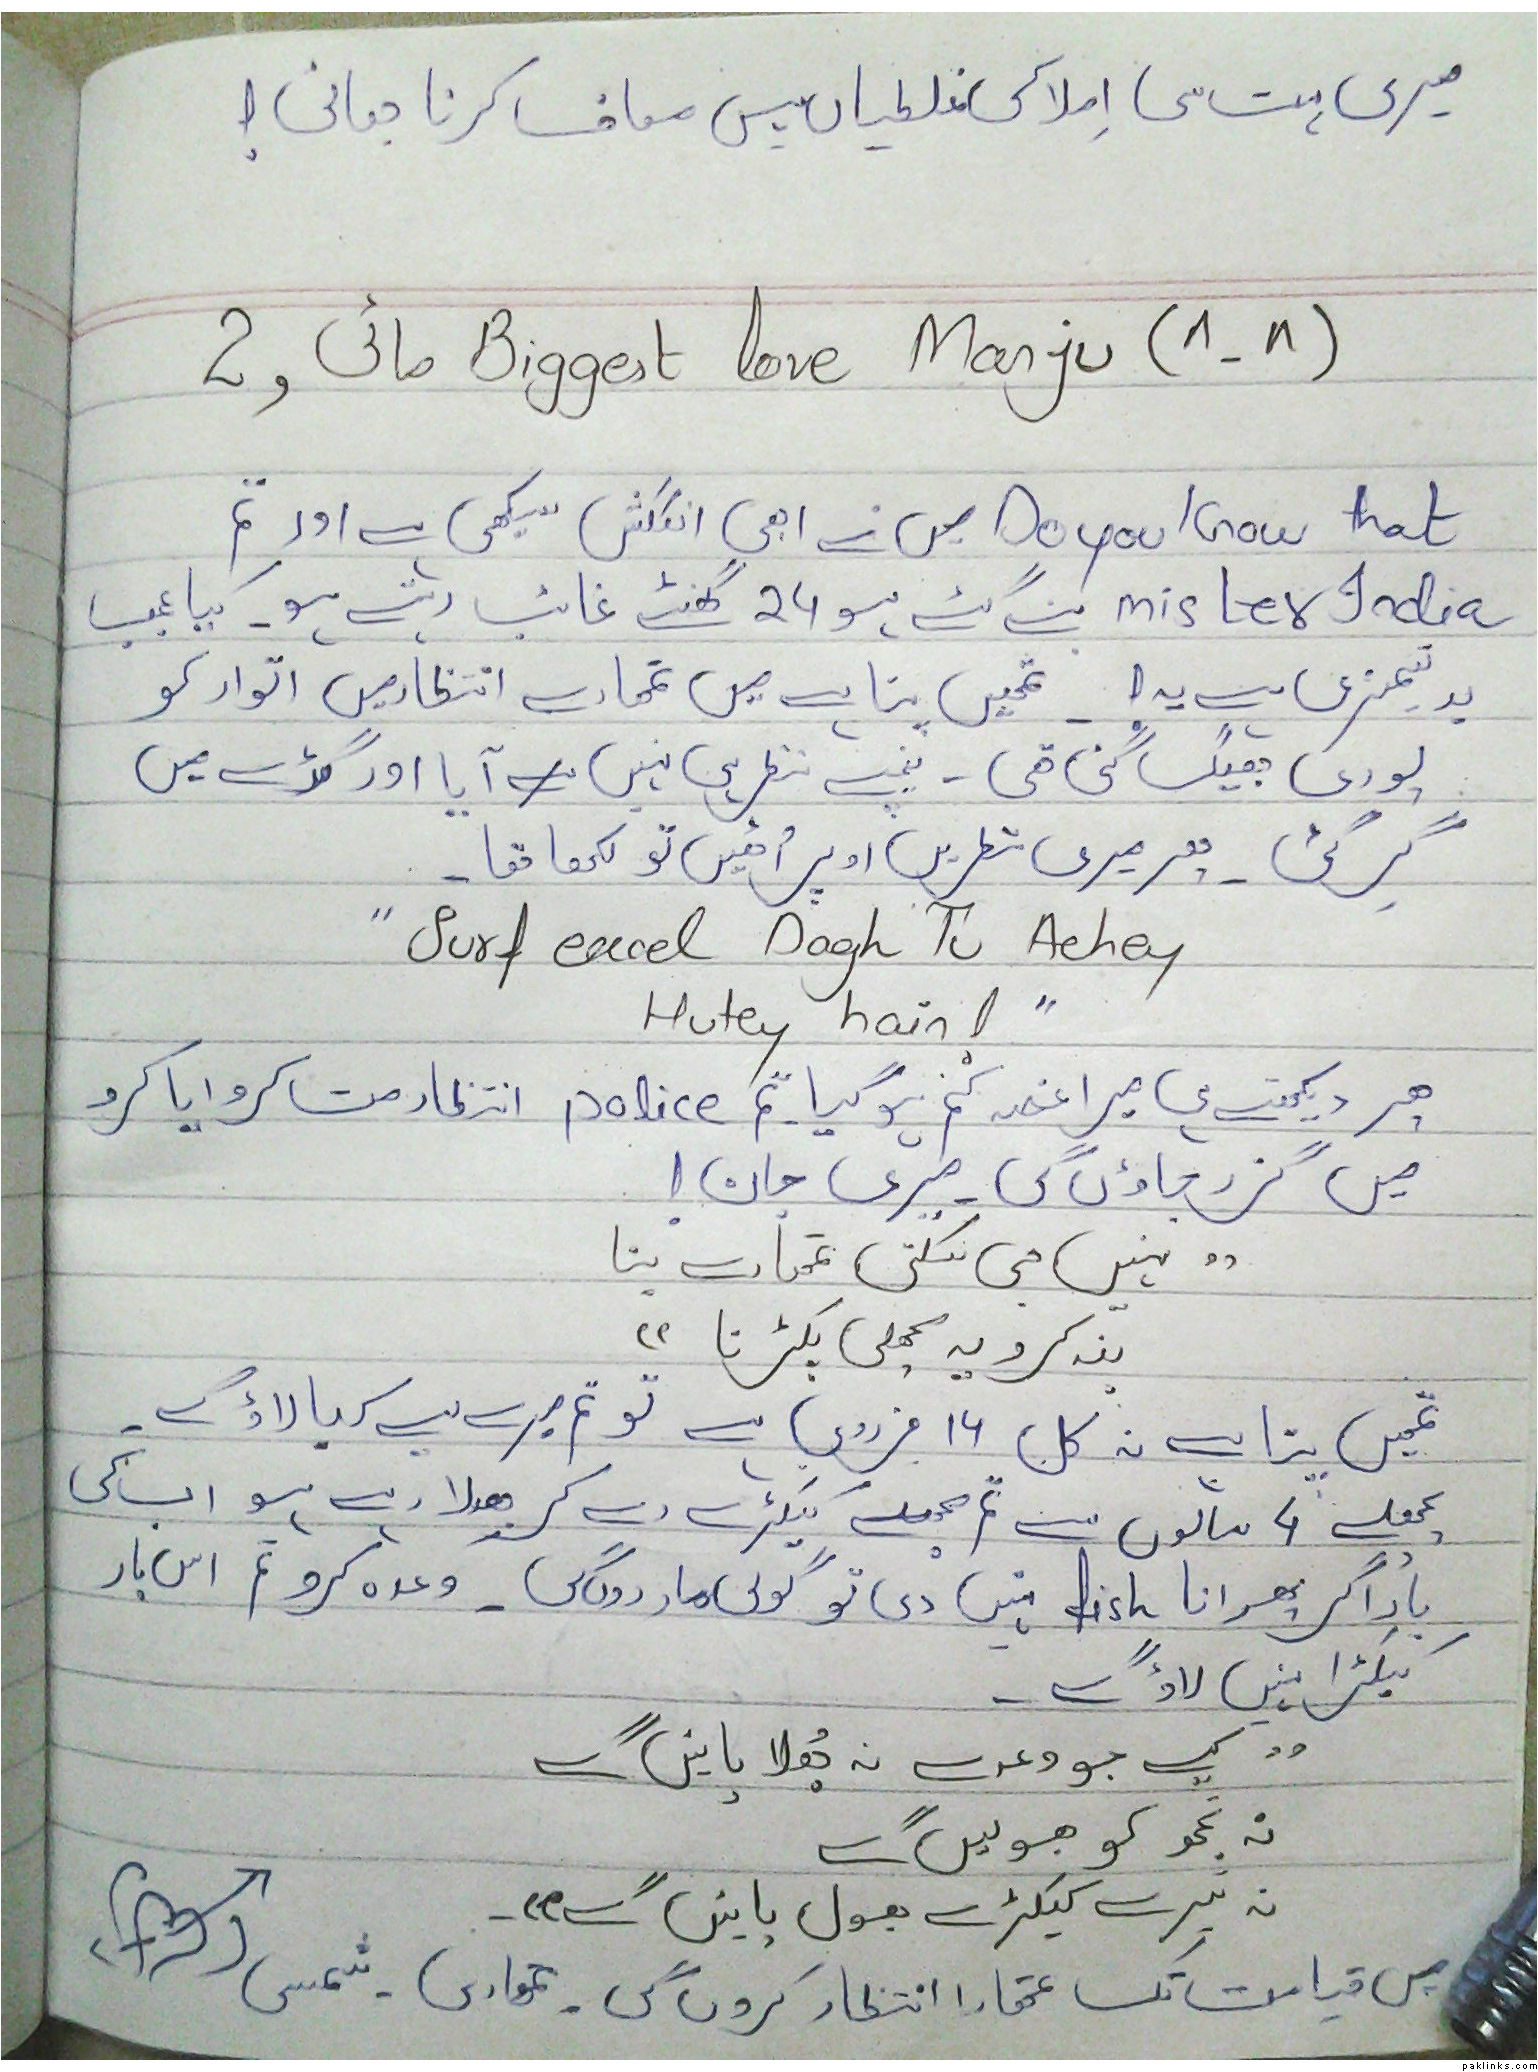 میری بہت سی اِملا کی غلطیاں ہیں معاف کرنا جانی!
2, مائی Biggest love Manju (^_^)
Do you know that میں نے ابھی انگلش سیکھی ہے اور تم
mister India بنے گئے ہو 24 گھنٹے غائب رہتے ہو۔ کیا عجب
بدتیمزی ہے یہ! ۔ تمھیں پتا ہے میں تمھارے انتظار میں اتوار کو
پوری بھیگ گئی تھی ۔ مجھے نظر ہی نہیں آیا اور گڑے میں
گِر گئی ۔ پھر میری نظریں اوپر اُٹھیں تو لکھا تھا ۔
" Surf excel Dagh Tu Achey
Hutey hain! "
پھر دیکھتے ہی میرا غصہ ختم ہو گیا۔ تم police انتظار مت کروایا کرو
میں گزر جاؤں گی۔ میری جان!
" نہیں جی سکتی تمھارے بنا
بند کرو یہ مچھلی پکڑنا "
تمھیں پتا ہے نہ کل 14 فروری ہے تو تم میرے لیے کیا لاؤ گے ۔
پچھلے 4 سالوں سے تم مجھے کیکڑے دے کر بھلا رہے ہو اب کی
بار اگر پھر انا fish نہیں دی تو گولی مار دوں گی ۔ وعدہ کرو تم اس بار
کیکڑا نہیں لاؤ گے ۔
" کیے جو وعدے نہ بُھلا پایئں گے
نہ تجھ کو بھولیں گے
نہ تیرے کیکڑے بھول پایئں گے " ۔
میں قیامت تک تمھارا انتظار کروں گی ۔ تمھاری ۔ شمسی
paklinks.com